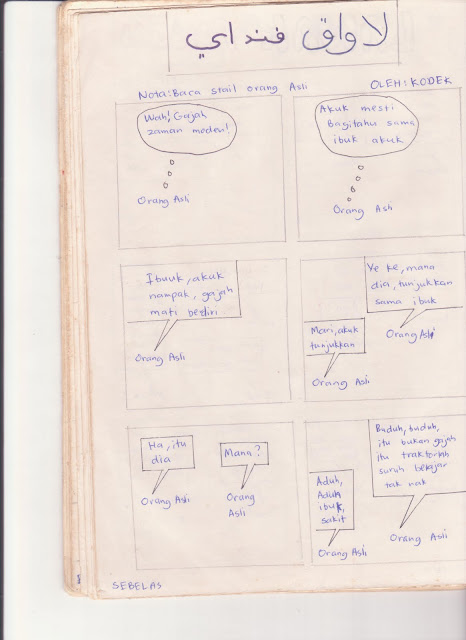 لاواق فنداي
Nota: Baca stail orang Asli
OLEH: KODEK
Wah! Gajah
zaman moden!
Orang Asli
Akuk mesti
Bagitahu sama
ibuk akuk
Orang Asli
Ibuuk, akuk
nampak, gajah
mati berdiri
Orang Asli
Ye ke, mana
dia, tunjukkan
sama ibuk
Orang Asli
Mari, akuk
tunjukkan
Orang Asli
Ha, itu
dia
Orang Asli
Mana?
Orang
Asli
Buduh, buduh,
itu bukan gajah
itu traktorlah
suruh belajar
tak nak
Orang Asli
Aduh,
Aduh
ibuk,
sakit
Orang Asli
SEBELAS